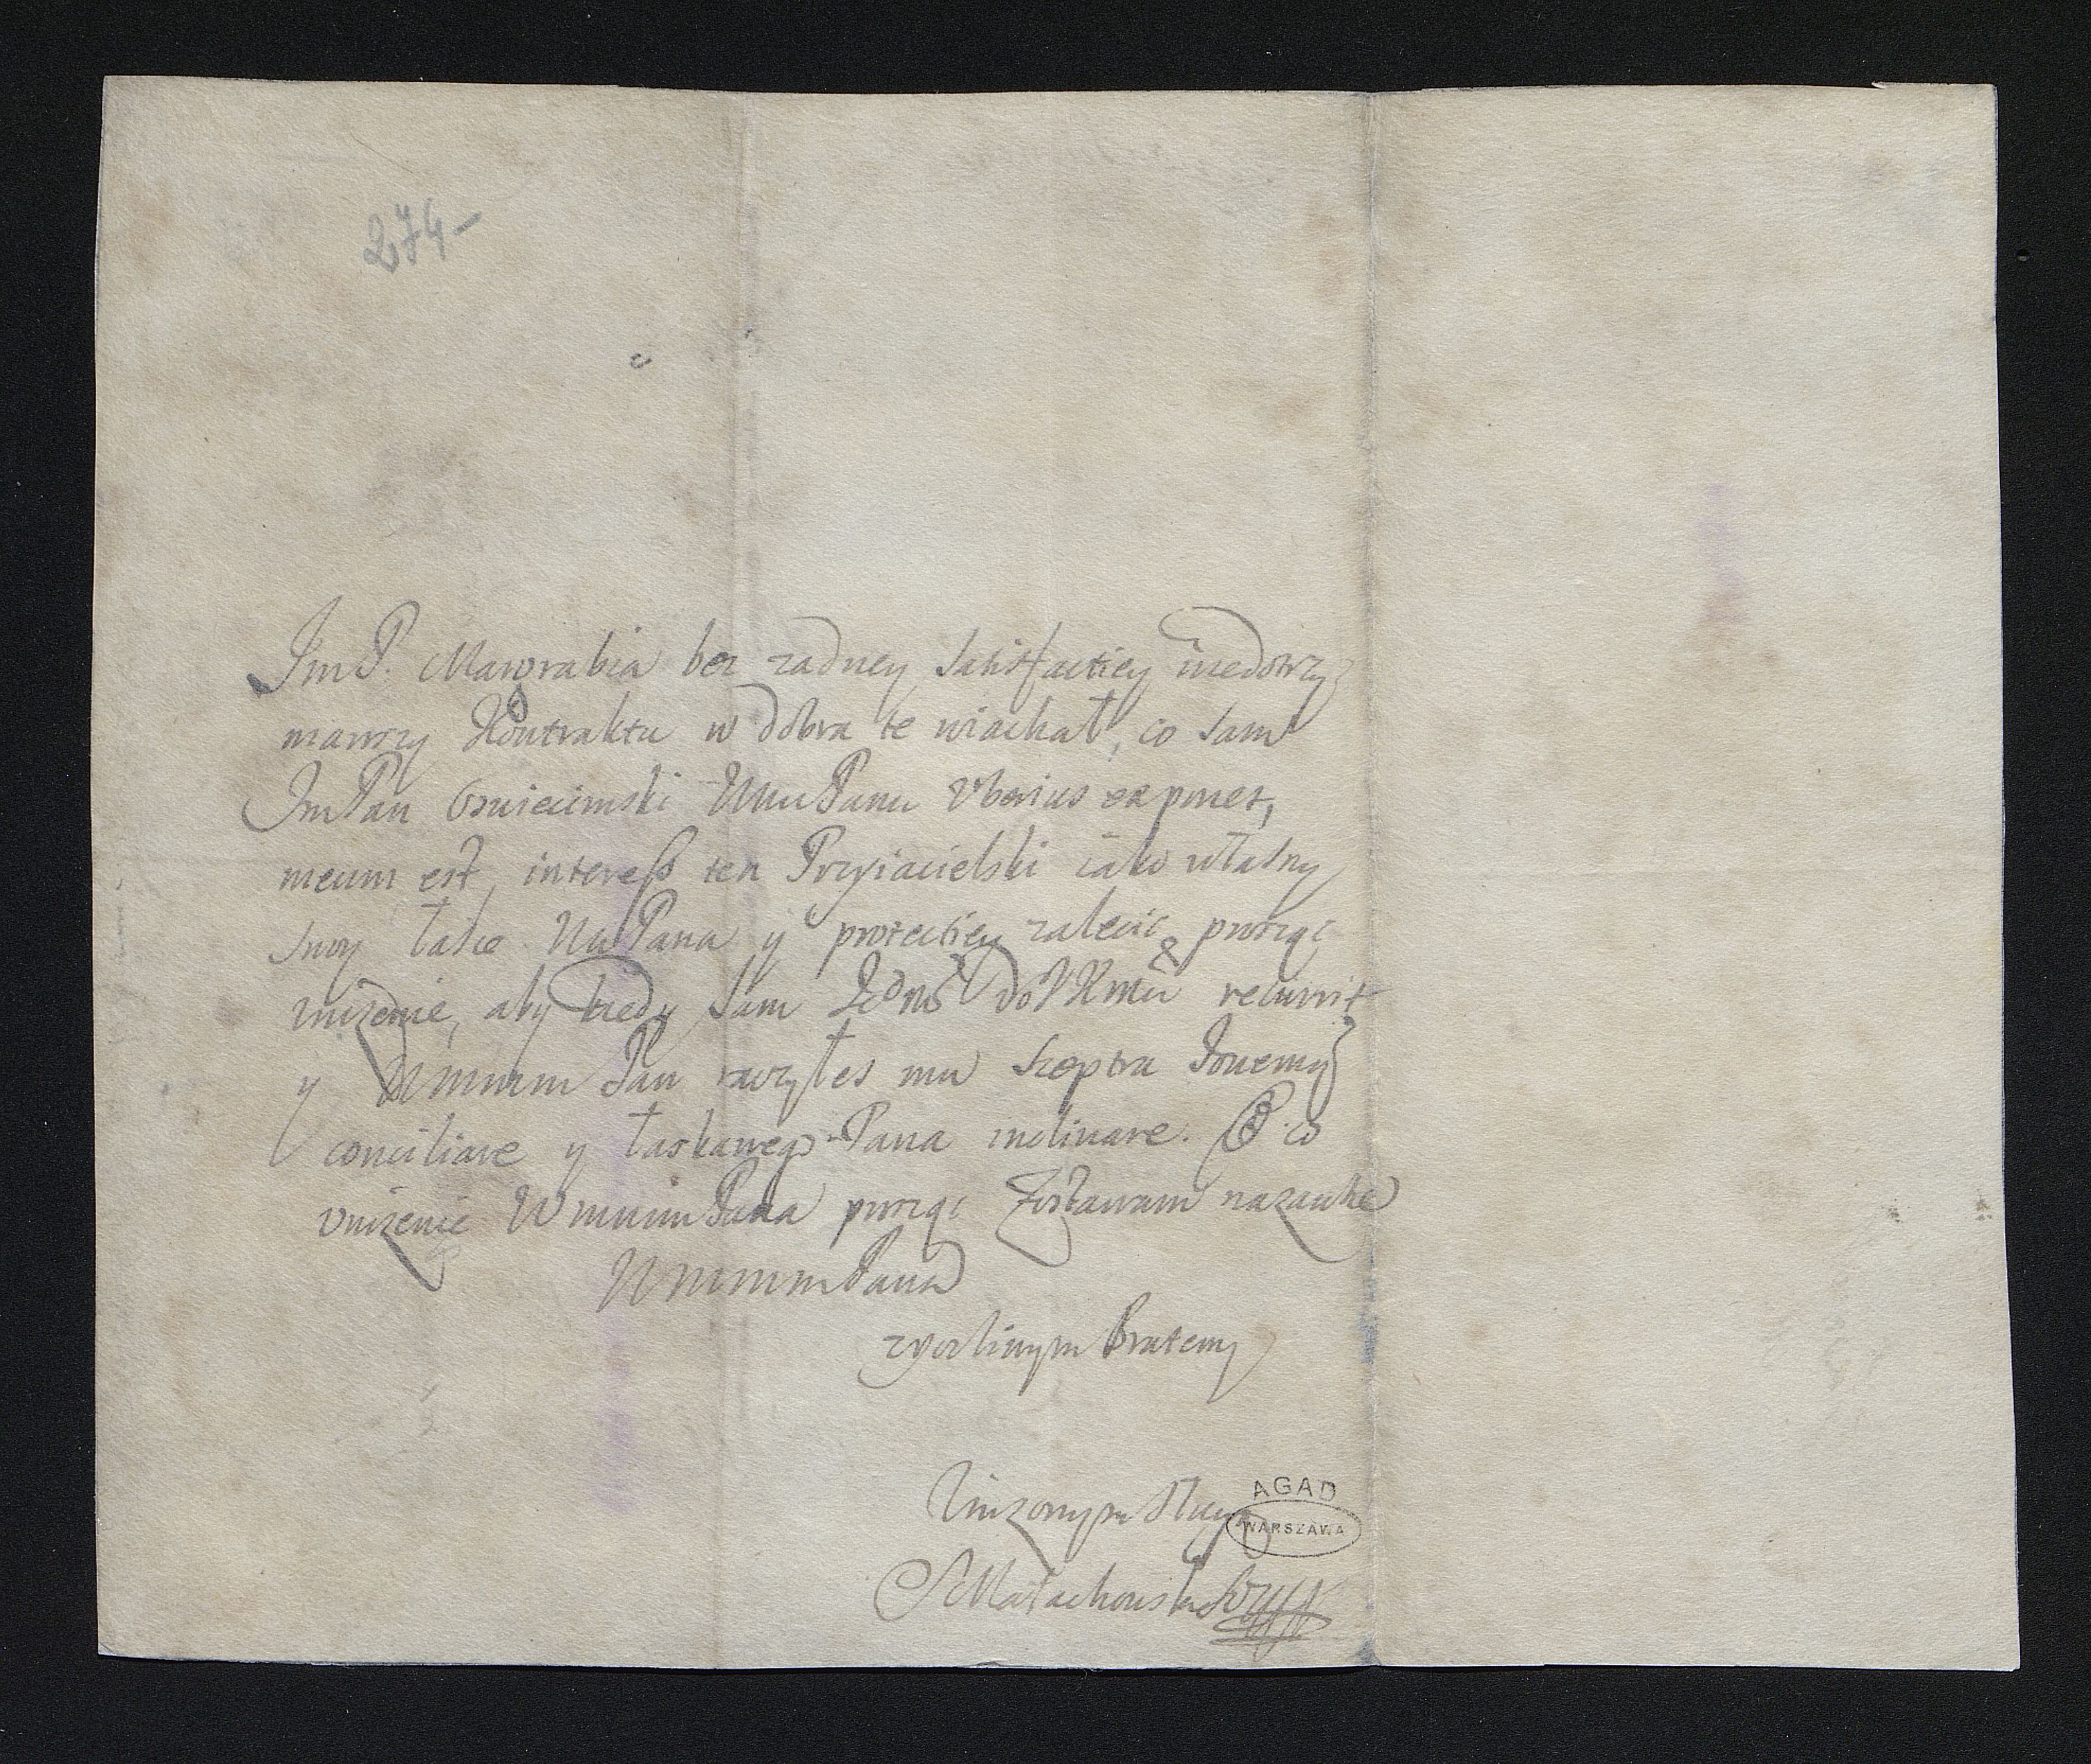 274-
JmP. Margrabia bez zadney Satisfactiey niedotrzy
mawszy Kontraktu w dobra te wiachał, co sam
JmPan Oswiecimski WmPanu Vberius exponet,
meum est, interess ten Przyiacielski iako własny
swoy łasce WmPana y protectiey zalecic prosząc
vnizenie, aby kiedy sam do recurrit
y Wmmm Pan raczyłes mu sceptra
conciliare y łaskawego Pana inclinare. O co
vnizenie WmmmPana prosząc Zostawam nazawsze
WmmmPana
zyczliwym Bratem y
Vnizonym Sługą
AGAD
WARSZAWA
SMałachowski